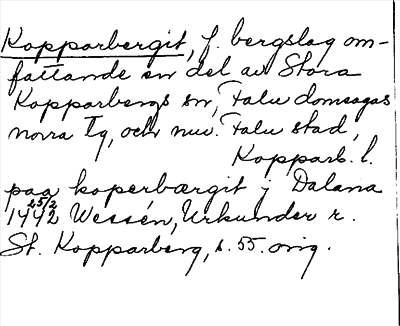 Kopparbergit, f. bergslag om-
fattande en del av Stora
Kopparbergs sn, Falu domsagas
norra Tg, och nuv. Falu stad,
Kopparb. l.
paa koperbærgit j Dalana
25/2
1442 Wessén, Urkunder r.
St. Kopparberg, s. 55. orig.